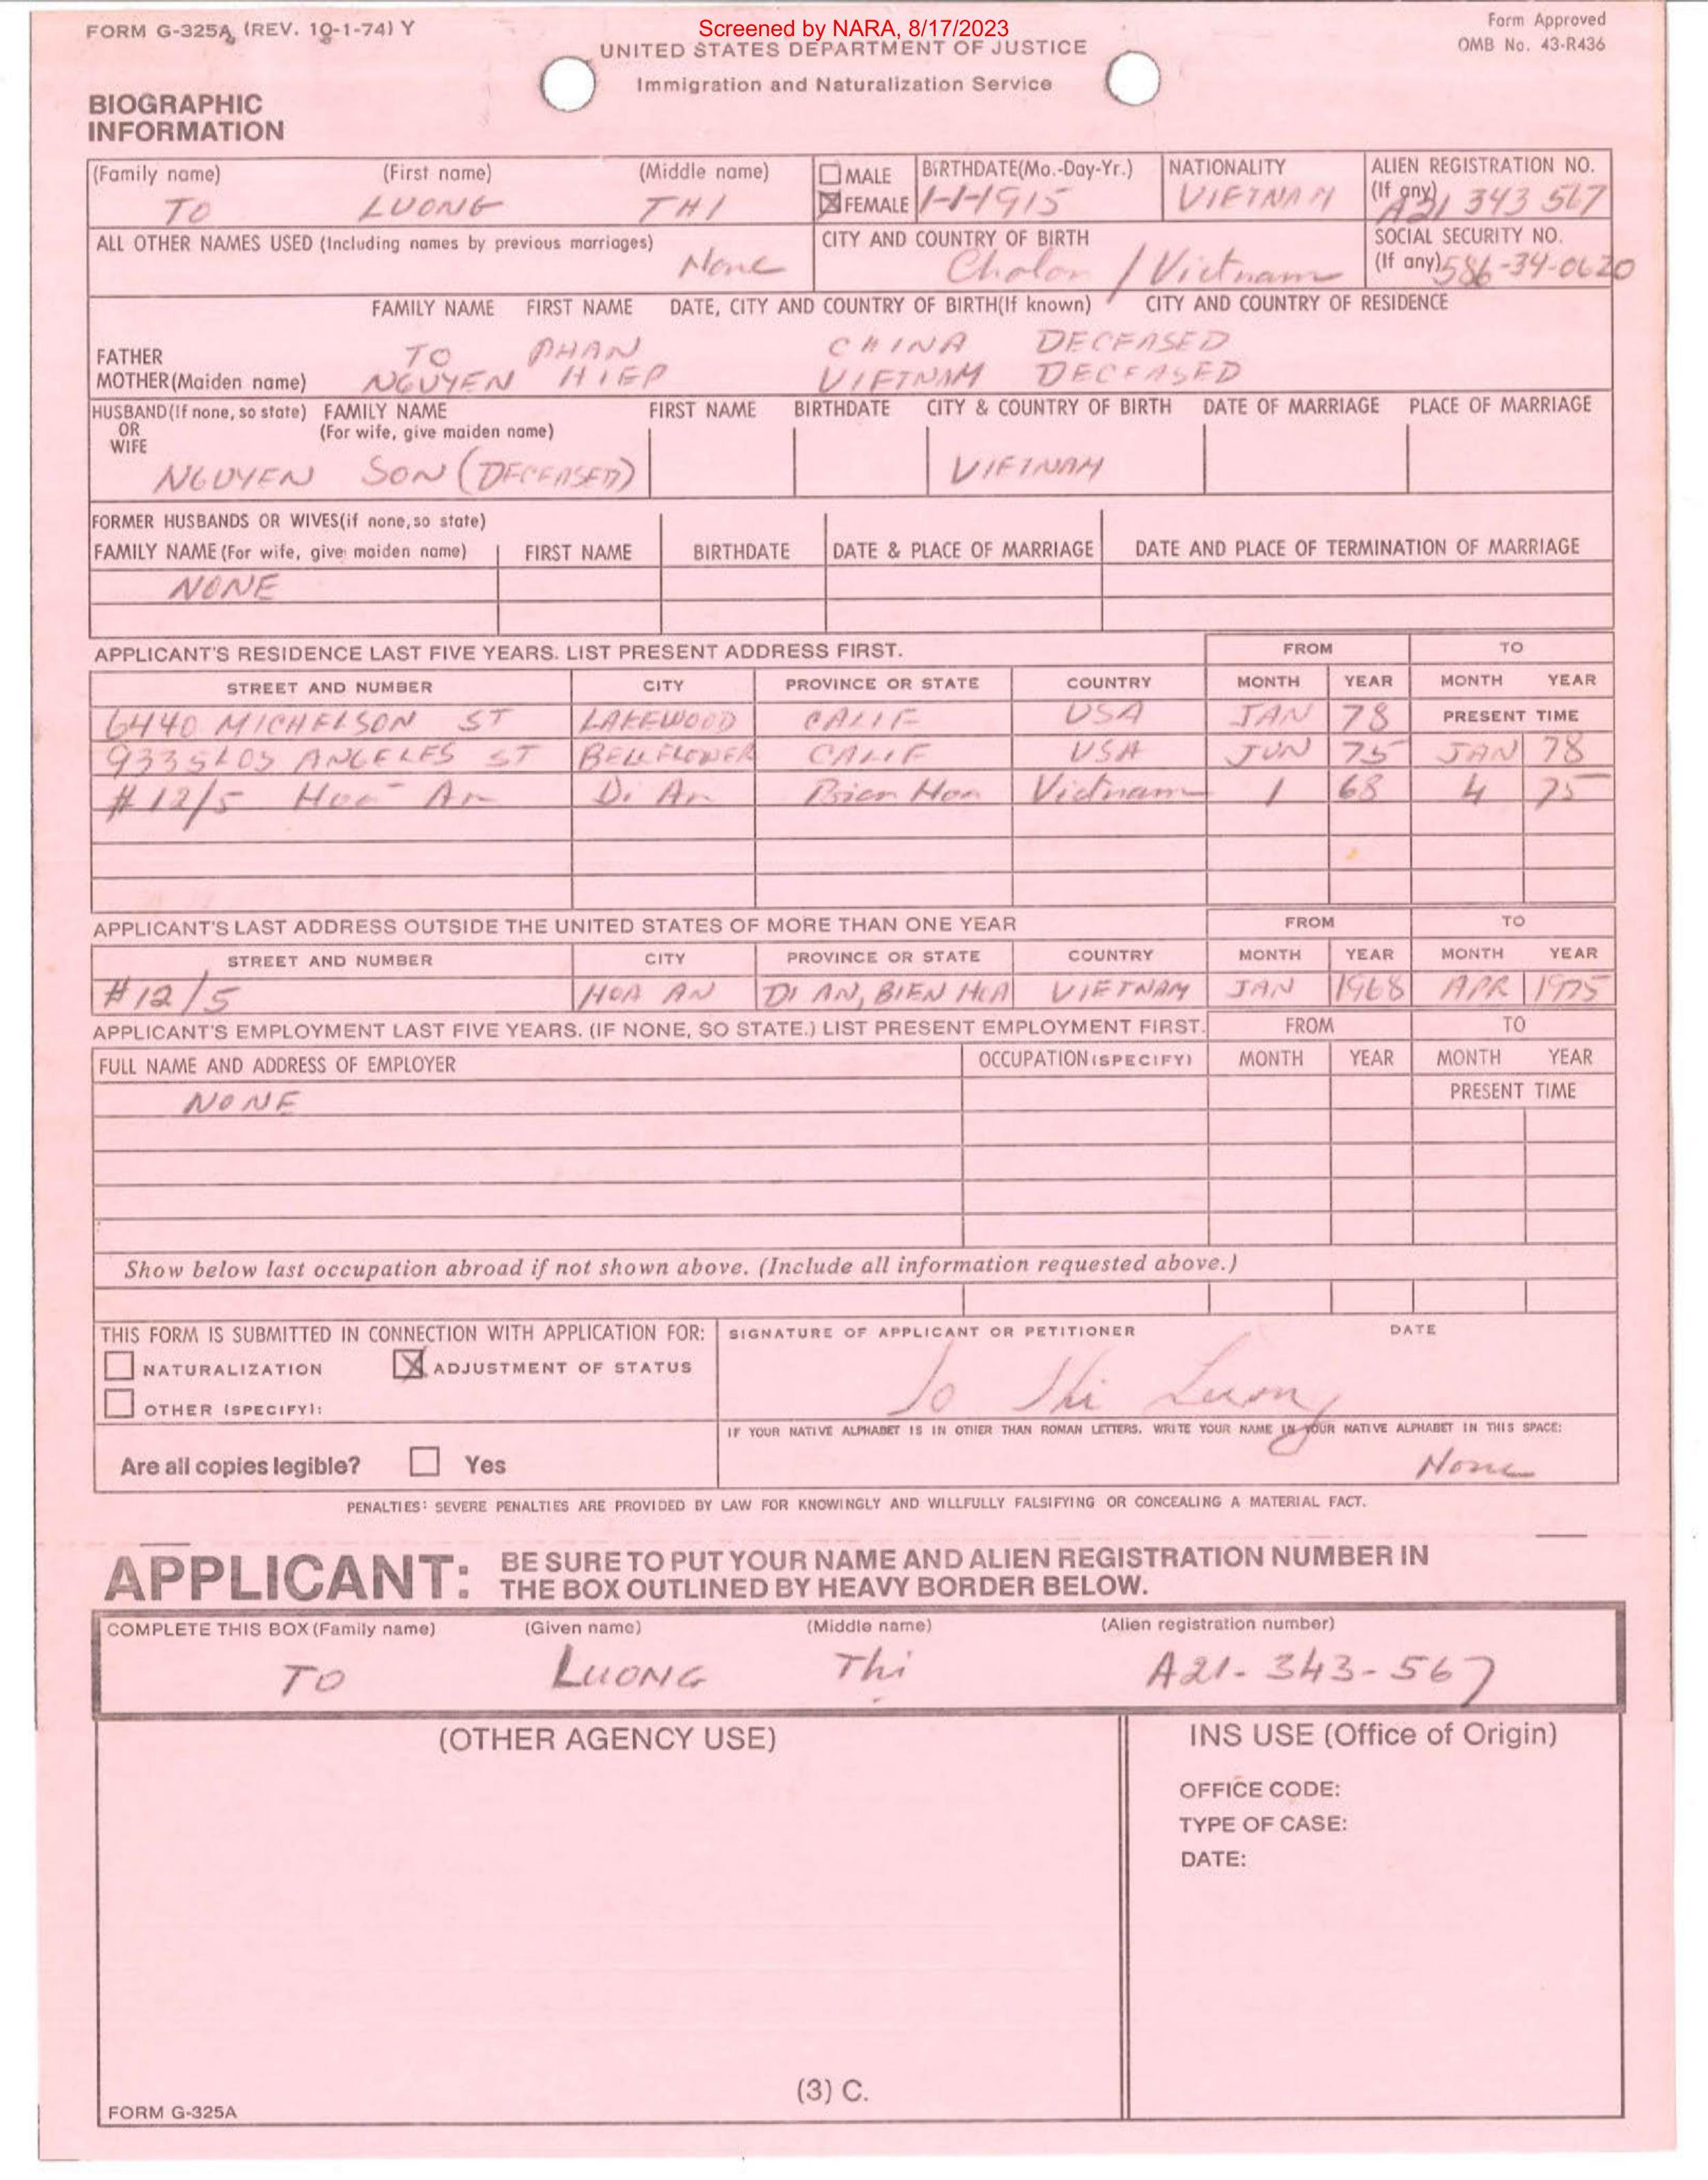 FORM G-325A (REV. 10-1-74) Y
Screened by NARA, 8/17/2023
Form Approved
OMB No. 43-R436
UNITED STATES DEPARTMENT OF JUSTICE
Immigration and Naturalization Service
BIOGRAPHIC
INFORMATION
(Family name) (First name) (Middle name) MALE BIRTHDATE(Mo.-Day-Yr.) NATIONALITY ALIEN REGISTRATION NO.
TO LUONG THI FEMALE 1-1-1915 VIETNAM (If any) A21 343 567
ALL OTHER NAMES USED (Including names by previous marriages) CITY AND COUNTRY OF BIRTH SOCIAL SECURITY NO.
None Cholon / Vietnam (If any) 586-34-0620
FAMILY NAME FIRST NAME DATE, CITY AND COUNTRY OF BIRTH(If known) CITY AND COUNTRY OF RESIDENCE
FATHER TO PHAN CHINA DECEASED
MOTHER(Maiden name) NGUYEN HIEP VIETNAM DECEASED
HUSBAND(If none, so state) FAMILY NAME FIRST NAME BIRTHDATE CITY & COUNTRY OF BIRTH DATE OF MARRIAGE PLACE OF MARRIAGE
OR (For wife, give maiden name)
WIFE
NGUYEN SON (DECEASED) VIETNAM
FORMER HUSBANDS OR WIVES(if none, so state)
FAMILY NAME (For wife, give maiden name) FIRST NAME BIRTHDATE DATE & PLACE OF MARRIAGE DATE AND PLACE OF TERMINATION OF MARRIAGE
NONE
APPLICANT'S RESIDENCE LAST FIVE YEARS. LIST PRESENT ADDRESS FIRST. FROM TO
STREET AND NUMBER CITY PROVINCE OR STATE COUNTRY MONTH YEAR MONTH YEAR
6440 MICHELSON ST LAKEWOOD CALIF USA JAN 78 PRESENT TIME
9335 LOS ANGELES ST BELLFLOWER CALIF USA JUN 75 JAN 78
#12/5 Hoa An Di An Bien Hoa Vietnam 1 68 4 75
APPLICANT'S LAST ADDRESS OUTSIDE THE UNITED STATES OF MORE THAN ONE YEAR FROM TO
STREET AND NUMBER CITY PROVINCE OR STATE COUNTRY MONTH YEAR MONTH YEAR
#12/5 HOA AN DI AN, BIEN HOA VIETNAM JAN 1968 APR 1975
APPLICANT'S EMPLOYMENT LAST FIVE YEARS. (IF NONE, SO STATE.) LIST PRESENT EMPLOYMENT FIRST. FROM TO
FULL NAME AND ADDRESS OF EMPLOYER OCCUPATION (SPECIFY) MONTH YEAR MONTH YEAR
NONE PRESENT TIME
Show below last occupation abroad if not shown above. (Include all information requested above.)
THIS FORM IS SUBMITTED IN CONNECTION WITH APPLICATION FOR: SIGNATURE OF APPLICANT OR PETITIONER DATE
NATURALIZATION ADJUSTMENT OF STATUS
To Thi Luong
OTHER (SPECIFY):
IF YOUR NATIVE ALPHABET IS IN OTHER THAN ROMAN LETTERS, WRITE YOUR NAME IN YOUR NATIVE ALPHABET IN THIS SPACE:
Are all copies legible? Yes None
PENALTIES: SEVERE PENALTIES ARE PROVIDED BY LAW FOR KNOWINGLY AND WILLFULLY FALSIFYING OR CONCEALING A MATERIAL FACT.
APPLICANT: BE SURE TO PUT YOUR NAME AND ALIEN REGISTRATION NUMBER IN
THE BOX OUTLINED BY HEAVY BORDER BELOW.
COMPLETE THIS BOX (Family name) (Given name) (Middle name) (Alien registration number)
TO LUONG Thi A21-343-567
(OTHER AGENCY USE) INS USE (Office of Origin)
OFFICE CODE:
TYPE OF CASE:
DATE:
(3) C.
FORM G-325A